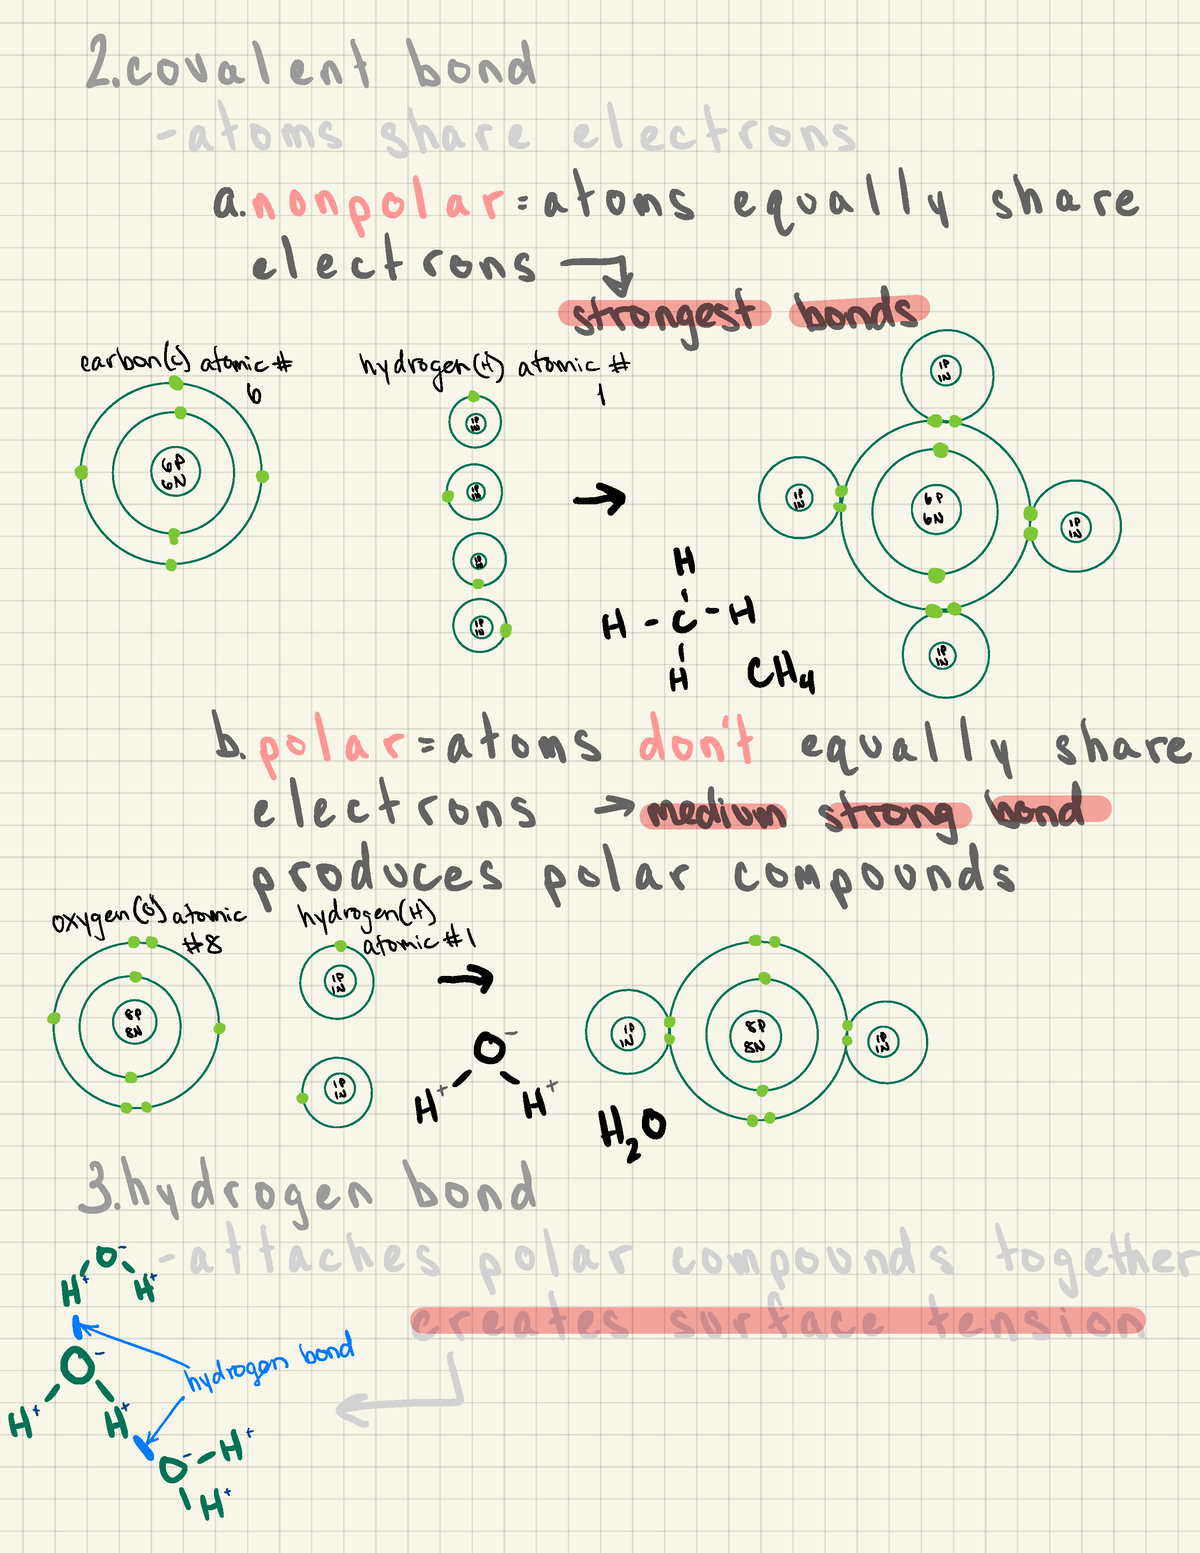 2.covalent bond
-atoms share electrons
a.nonpolar=atoms equally share
electrons →
strongest bonds
carbon(C) atomic #
6
hydrogen(H) atomic #
1
6P
6N
1P
1N
1P
1N
1P
1N
1P
1N
→
1P
1N
1P
1N
6P
6N
1P
1N
1P
1N
H
H - C - H
H
CH4
b.polar=atoms don't equally share
electrons → medium strong bond
produces polar compounds
oxygen(O) atomic
#8
hydrogen(H)
atomic #1
8P
8N
1P
1N
1P
1N
→
O-
H+ H+
H2O
1P
1N
8P
8N
1P
1N
3.hydrogen bond
-attaches polar compounds together
creates surface tension
O-
H+ H+
hydrogen bond
O-
H+ H+
O- - H+
H+